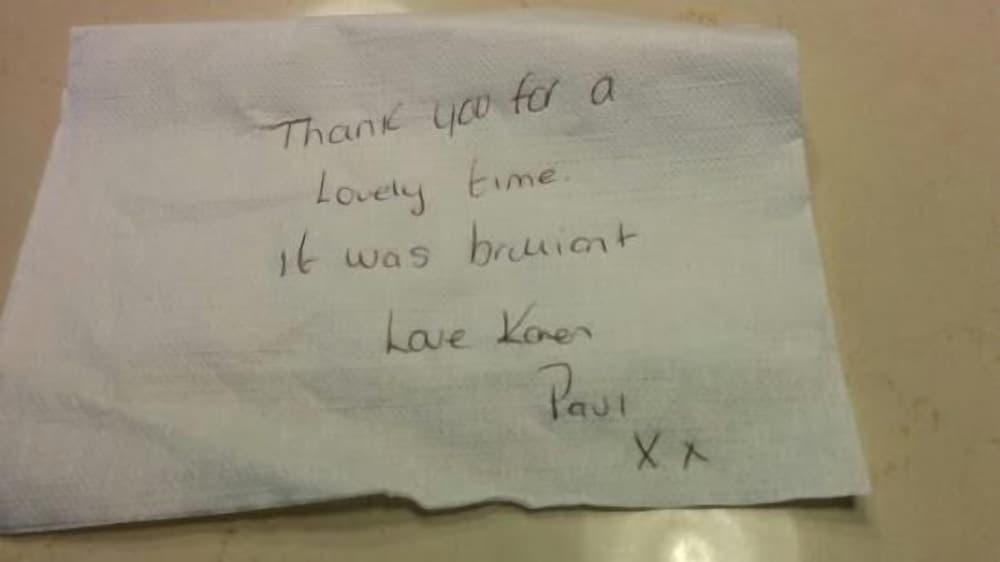 Thank you for a
Lovely time.
it was brilliant
Love Karen
Paul
X X